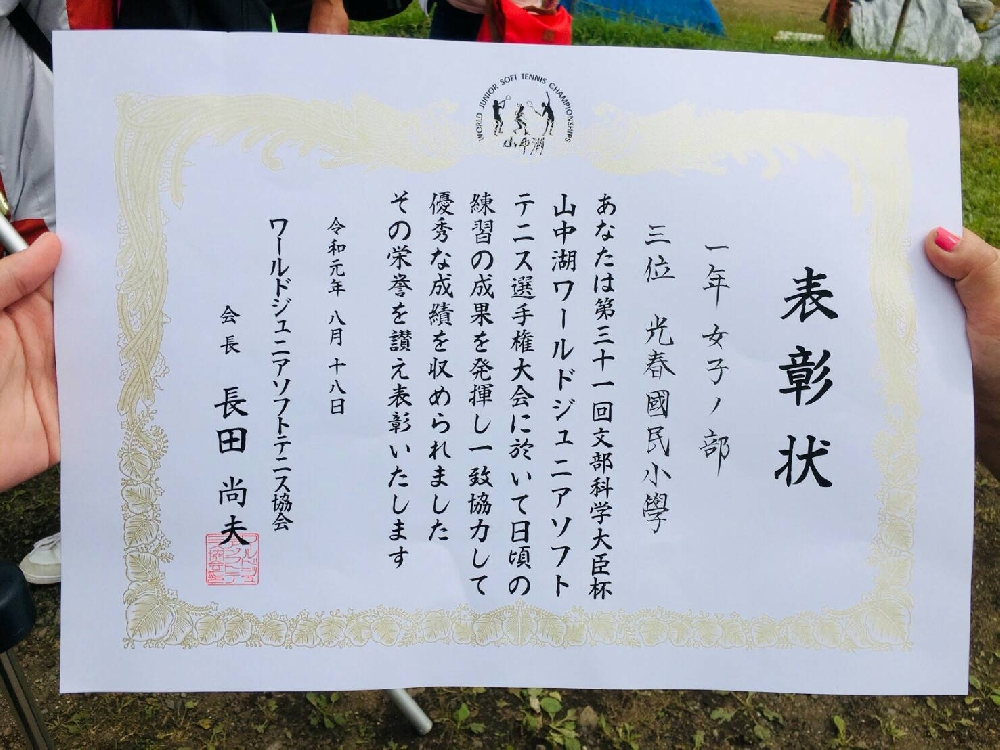 WORLD JUNIOR SOFT TENNIS CHAMPIONSHIPS
山中湖
表彰状
一年女子ノ部
三位 光春國民小學
あなたは第三十一回文部科学大臣杯
山中湖ワールドジュニアソフト
テニス選手権大会に於いて日頃の
練習の成果を発揮し一致協力して
優秀な成績を収められました
その栄誉を讃え表彰いたします
令和元年 八月 十八日
ワールドジュニアソフトテニス協会
会長 長田 尚夫